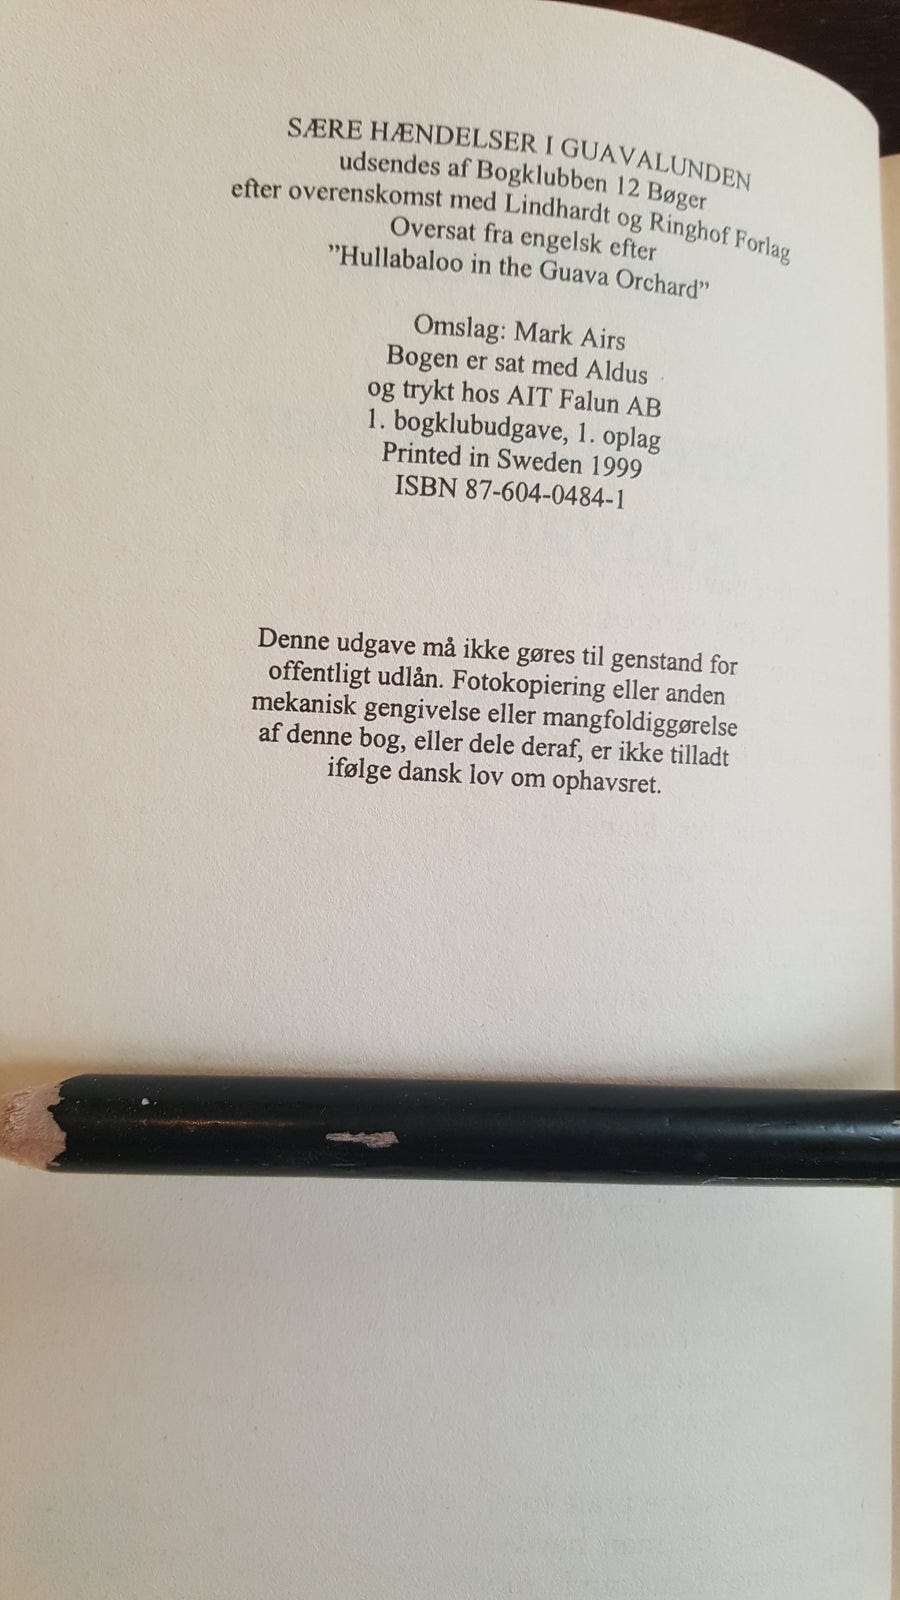 SÆRE HÆNDELSER I GUAVALUNDEN
udsendes af Bogklubben 12 Bøger
efter overenskomst med Lindhardt og Ringhof Forlag
Oversat fra engelsk efter
”Hullabaloo in the Guava Orchard”
Omslag: Mark Airs
Bogen er sat med Aldus
og trykt hos AIT Falun AB
1. bogklubudgave, 1. oplag
Printed in Sweden 1999
ISBN 87-604-0484-1
Denne udgave må ikke gøres til genstand for
offentligt udlån. Fotokopiering eller anden
mekanisk gengivelse eller mangfoldiggørelse
af denne bog, eller dele deraf, er ikke tilladt
ifølge dansk lov om ophavsret.